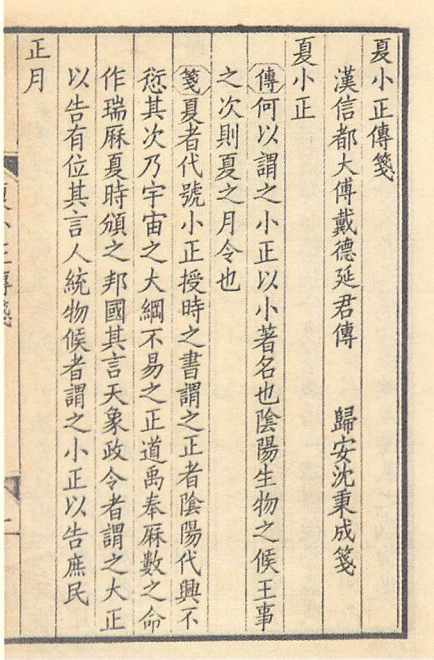 夏小正傳箋
漢信都大傅戴德延君傳 歸安沈秉成箋
夏小正
傳何以謂之小正以小著名也陰陽生物之候王事
之次則夏之月令也
箋夏者代號小正授時之書謂之正者陰陽代興不
愆其次乃宇宙之大綱不易之正道禹奉厤數之命
作瑞厤夏時頒之邦國其言天象政令者謂之大正
以告有位其言人統物候者謂之小正以告庶民
正月
夏小正傳箋
一